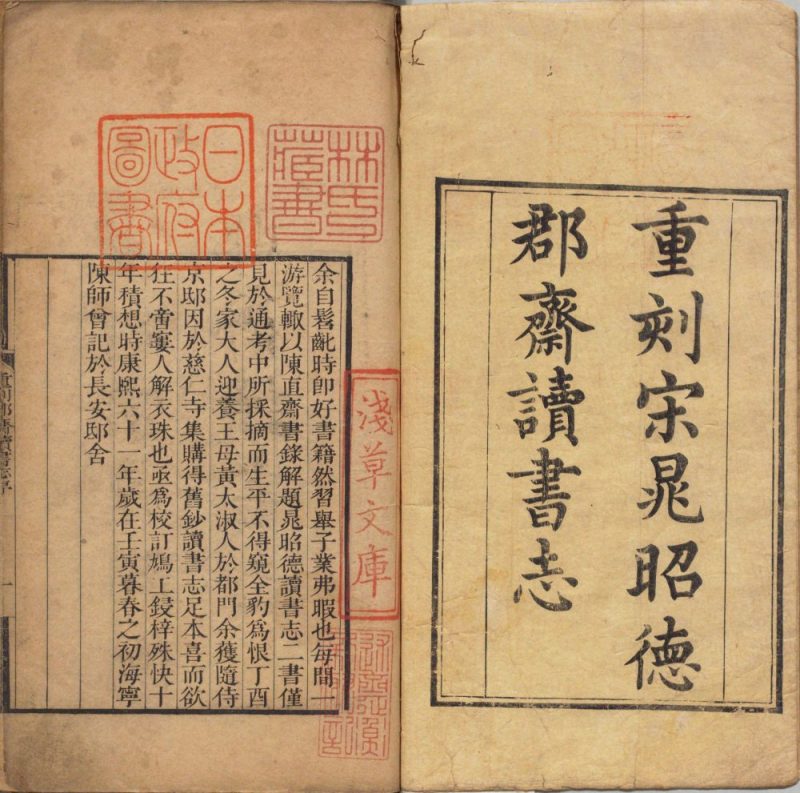 重刻宋晁昭德
郡齋讀書志
林氏
藏書
日本
政府
圖書
淺草文庫
余自髫齔時卽好書籍然習舉子業弗暇也每間一
游覽輒以陳直齋書錄解題晁昭德讀書志二書僅
見於通考中所採摘而生平不得窺全豹爲恨丁酉
之冬家大人迎養王母黃太淑人於都門余獲隨侍
京邸因於慈仁寺集購得舊鈔讀書志足本喜而欲
狂不啻窶人解衣珠也亟爲校訂鳩工鋟梓殊快十
年積想時康熙六十一年歲在壬寅暮春之初海寧
陳師曾記於長安邸舍
重刻郡齋讀書志序
一